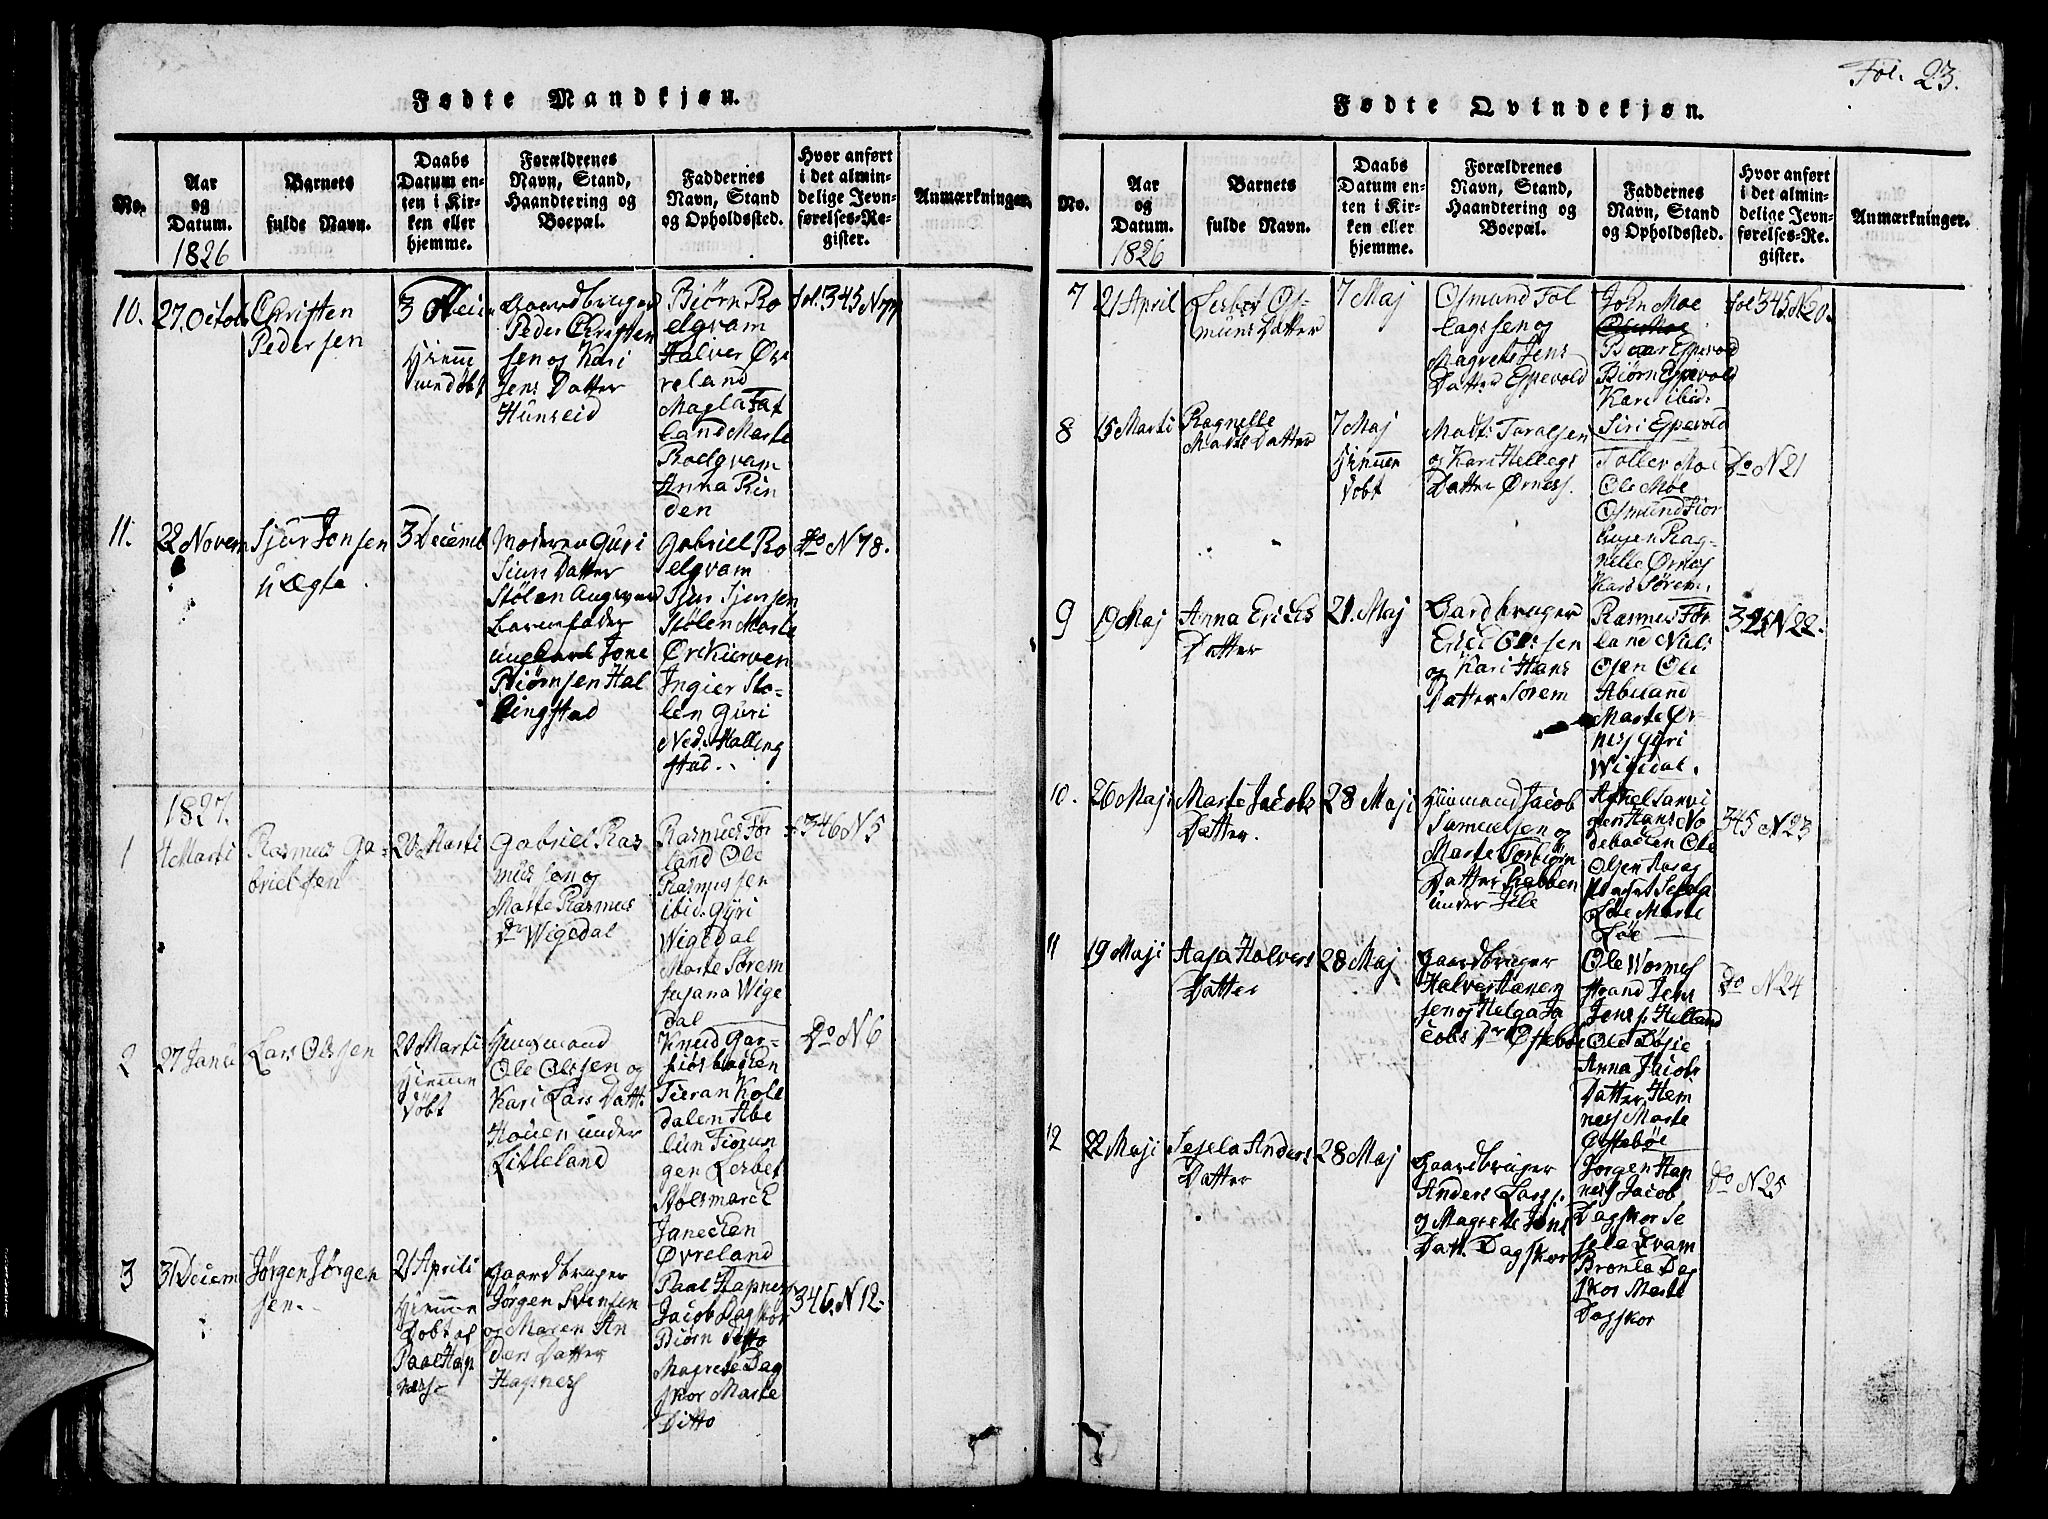 Fødte Mandkjøn.
No.
Aar
og
Datum.
1826
Barnets
fulde Navn.
Daabs
Datum en-
ten i Kir-
ken eller
hjemme.
Forældrenes
Navn, Stand,
Haandtering og
Boepæl.
Faddernes
Navn, Stand
og Opholdssted.
Hvor anført
i det almin-
delige Jevn-
førelses-Re-
gister.
Anmærkninger.
10.
27. Octob
Christen
Pedersen
3
Hiemme
døbt
Gaardbruger
Peder Christen
sen og Kari
Jens Datter
Hunseid
Biørn Ro
elgvam
Halver Øv
reland
Magla Tat
land Marte
Roelgvam
Anna Rin
den
fol. 345 N 77
11.
22 Novem
Sjur Jonsen
uægte
3 Decemb
Moderen Guri
Siurs Datter
Stølen
Barnefader
ungkarl Jone
Biørnsen Hal
lingstad
Gabriel Ro
elgvam
Siur Sjursen
Stølen Marte
Ørekierven
Ingier Stø-
len Guri
Ned. Halling
stad.
Do N 78.
1827.
1
4 Marti
Rasmus Ga-
brielsen
20 Marti
Gabriel Ras
mussen og
Marte Rasmus
Dr Wigedal
Rasmus Før
land Ole
Rasmussen
ibid. Gyri
Wigedal
Marte Sørem
Susana Wige
dal
f 346 N 5
2
27 Janu
Lars Olssen
20 Marti
Hiemme
Døbt
Huusmand
Ole Olssen og
Kari Lars Datt.
Houen under
Litleland
Knud Gar-
siøs backen
Tieran Kole
dalen Abe
lun Fiørun
gen Lisbet
Stølsmarck
Janecken
Øvreland
Do N 6
3
31 Decem
Jørgen Jørgen
sen.
21 Aprili
Hiemme
Døbt af
Paal Hap
ness
Gaardbruger
Jørgen Svensen
og Maren An
ders Datter
Hapness
Paal Hapness
Jacob Dagskor
Biørn Ditto
Magrete Dag
skor Marte
Ditto
346. N 12.
Fol. 23.
Fødte Qvindekjøn.
No.
Aar
og
Datum.
1826
Barnets
fulde Navn.
Daabs
Datum en-
ten i Kir-
ken eller
hjemme.
Forældrenes
Navn, Stand,
Haandtering og
Boepæl.
Faddernes
Navn, Stand
og Opholdssted.
Hvor anført
i det almin-
delige Jevn-
førelses-Re-
gister.
Anmærkninger.
7
21 April
Lisbet Os-
muns Datter
7 Maj
Osmund Tol
lagssen og
Magrete Jens
Datter Espevold
John Moe
Ole Moe
Boar Espevold
Biørn Espevold
Kari ibid:
Siri Espevold
fol 345. N 20.
8
15 Marti
Ragnille
Mats Datter
7 Maj
Hiemme
Døbt
Mats Toralsen
og Kari Hellegs
Datter Ørness.
Tollev Moe
Ole Moe
Osmund Fior
husen Rag-
nille Ørness
Kari Sørem.
Do N 21
9
19 Maj
Anna Erichs
Datter
21. Maj
Gardbruger
Erick Olssen
og Kari Hans
Datter Sørem
Rasmus Før
land Nils
Osen Ole
Abeland
Marte Ør-
ness Gyri
Wigedal.
345 N 22.
10.
26 Maji
Marte Jacobs
Datter.
28 Maji
Huusmand Jacob
Samuelsen og
Marte Torbiørn
Datter Rabben
under
Hans No
debacken Ole
Olsen
Sesela
Løe Marte
Løe
345 N 23
11
19 Maji
Aasa Halvers
Datter
28 Maj
Gaardbruger
Halver Hansen
sen og Helga Ja
cobs Dr Østebøe
Ole Wormes
strand Jens
Jens s. Helland
Ole Døsie
Anna Jacobs
Datter Hem
ness Marte
Østebøe
Do N 24
12
22 Maji
Sesela Anders
Datter
28 Maj
Gaardbruger
Anders Lars s.
og Magrete Jons
Datt. Dagskor
Jørgen Hap
ness Jacob
Dagskor Se
sela Qvam
Bronla Dag
skor Marte
Dagskor
Do N 25